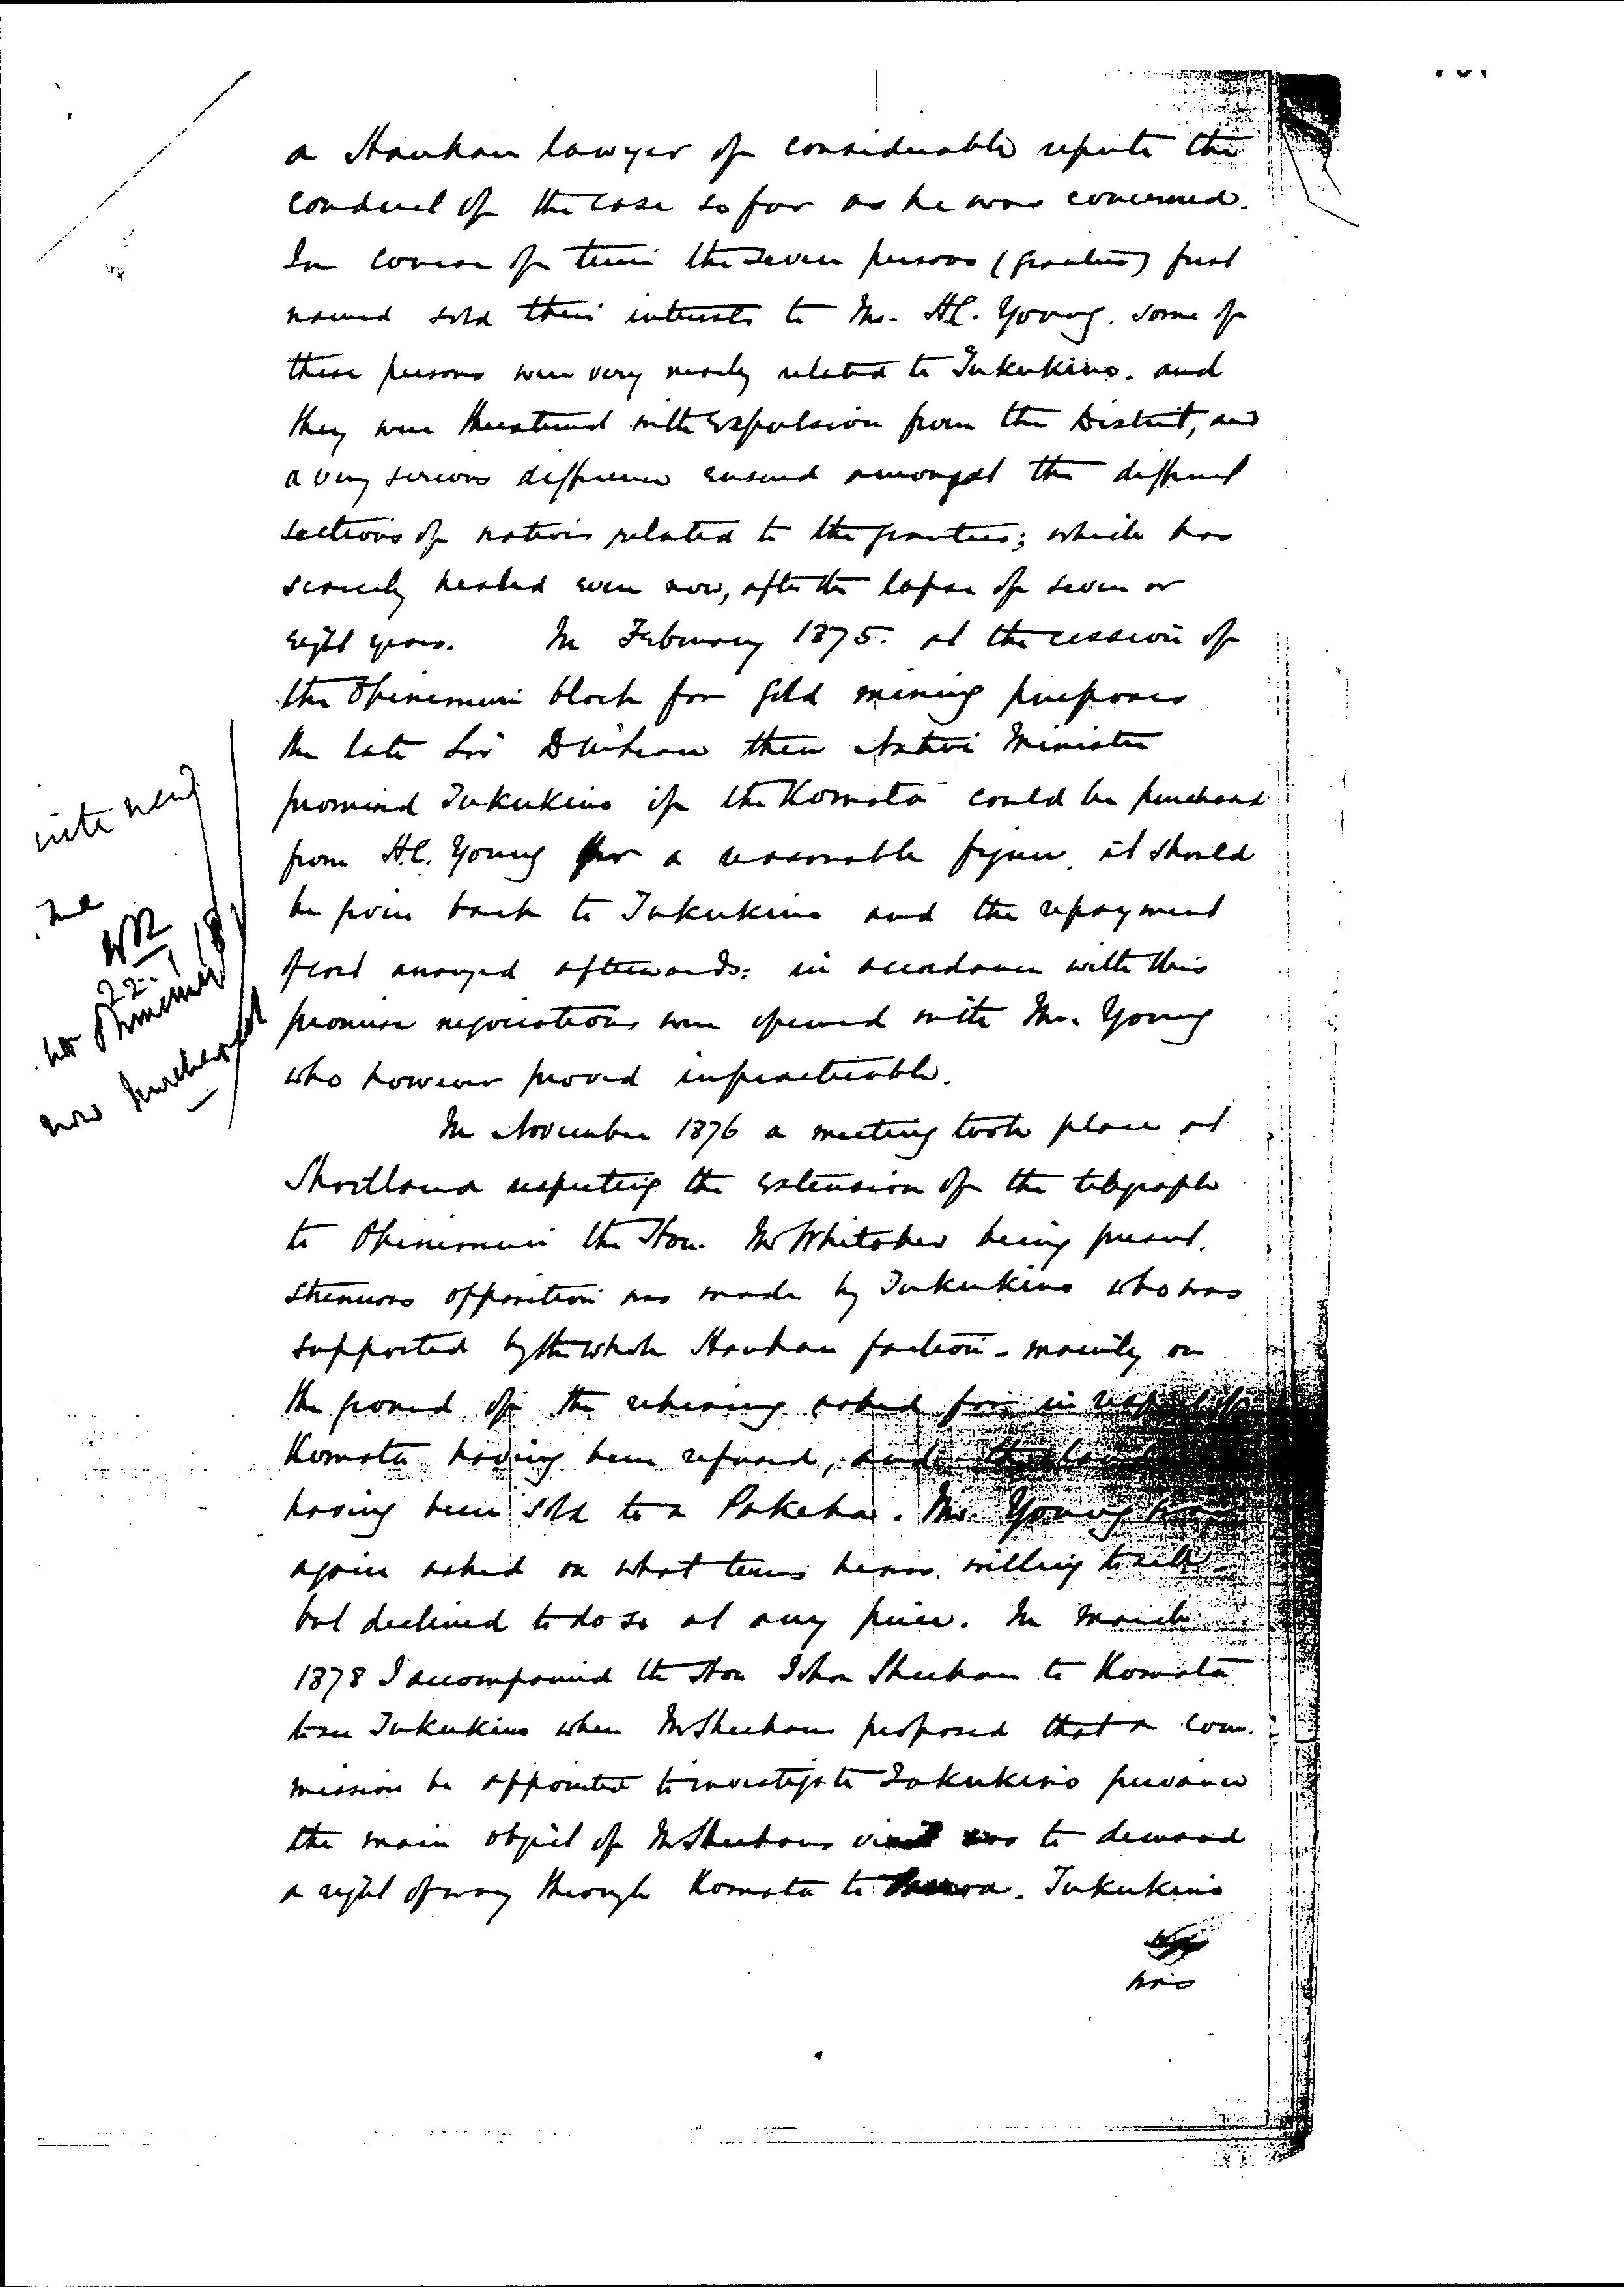 a Hauhau lawyer of considerable repute the
conduct of the case so far as he was concerned.
In course of time the seven persons (grantees) first
named sold their interests to Mr. H.C. Young. some of
these persons were very nearly related to Tukukino. and
they were threatened with expulsion from the District, and
a very serious difference ensued amongst the different
sections of natives related to the grantees; which has
scarcely healed even now, after the lapse of seven or
eight years. In February 1875. at the cession of
the Ohinemuri block for gold mining purposes
the late Sir D McLean then Native Minister
promised Tukukino if the Komata could be purchased
from H.C. Young for a reasonable figure, it should
be given back to Tukukino and the repayment
of cost arranged afterwards: in accordance with this
promise negociations were opened with Mr. Young
who however proved impracticable.
In November 1876 a meeting took place at
Shortland respecting the extension of the telegraph
to Ohinemuri the Hon. Mr Whitaker being present.
strenuous opposition was made by Tukukino who was
supported by the whole Hauhau faction - mainly on
the ground of the rehearing asked for in respect of
Komata having been refused, and the land
having been sold to a Pakeha. Mr. Young was
again asked on what terms he was willing to sell
but declined to do so at any price. In March
1878 I accompanied the Hon John Sheehan to Komata
to see Tukukino when Mr Sheehan proposed that a com-
mission be appointed to investigate Tukukino grievance
the main object of Mr Sheehans visit was to demand
a right of way through Komata to Paeroa. Tukukino
was
22
now purchased